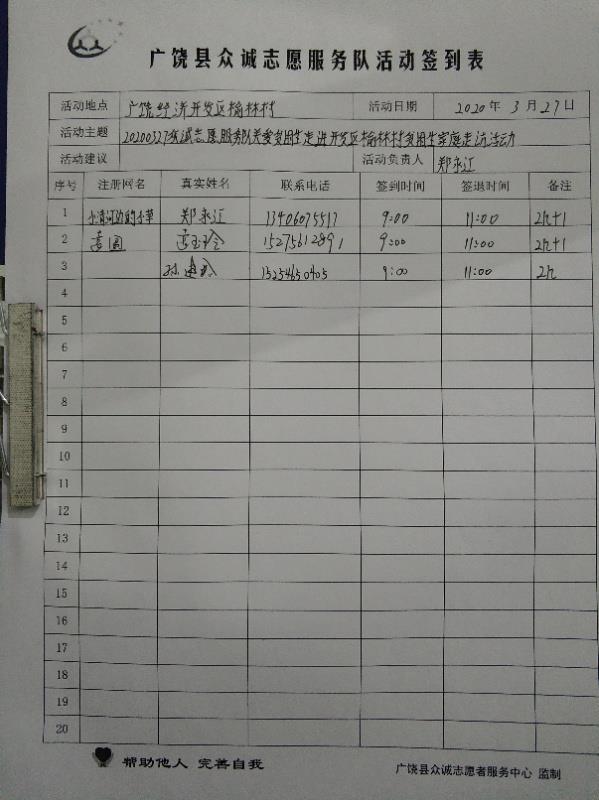 广饶县众诚志愿服务队活动签到表
活动地点 广饶经济开发区榆林村 活动日期 2020年3月27日
活动主题 20200327众诚志愿服务队关爱贫困生走进开发区榆林村贫困生家庭走访活动
活动建议 活动负责人 郑永江
序号 注册网名 真实姓名 联系电话 签到时间 签退时间 备注
1 小清河边的小草 郑永江 13406075517 9:00 11:00 2h+1
2 15275612891 9:00 11:00 2h+1
3 孙 15254650405 9:00 11:00 2h
4
5
6
7
8
9
10
11
12
13
14
15
16
17
18
19
20
帮助他人 完善自我
广饶县众诚志愿者服务中心 监制